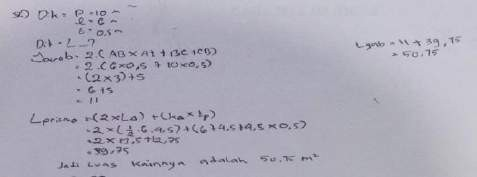 Dik = P = 10 m
l = 6 m
t = 0,5 m
Dit = L ?
Jawab = 2 (AB × AI + BC × CB)
= 2 (6 × 0,5 + 10 × 0,5)
= (2 × 3) + 5
= 6 + 5
= 11
L prisma = (2 × LΔ) + (kΔ × tp)
= 2 × (1/2 . 6 . 4,5) + (6 + 4,5 + 4,5 × 0,5)
= 39,75
Jadi Luas Kainnya adalah 50,75 m²
L gab = 11 + 39,75
= 50,75